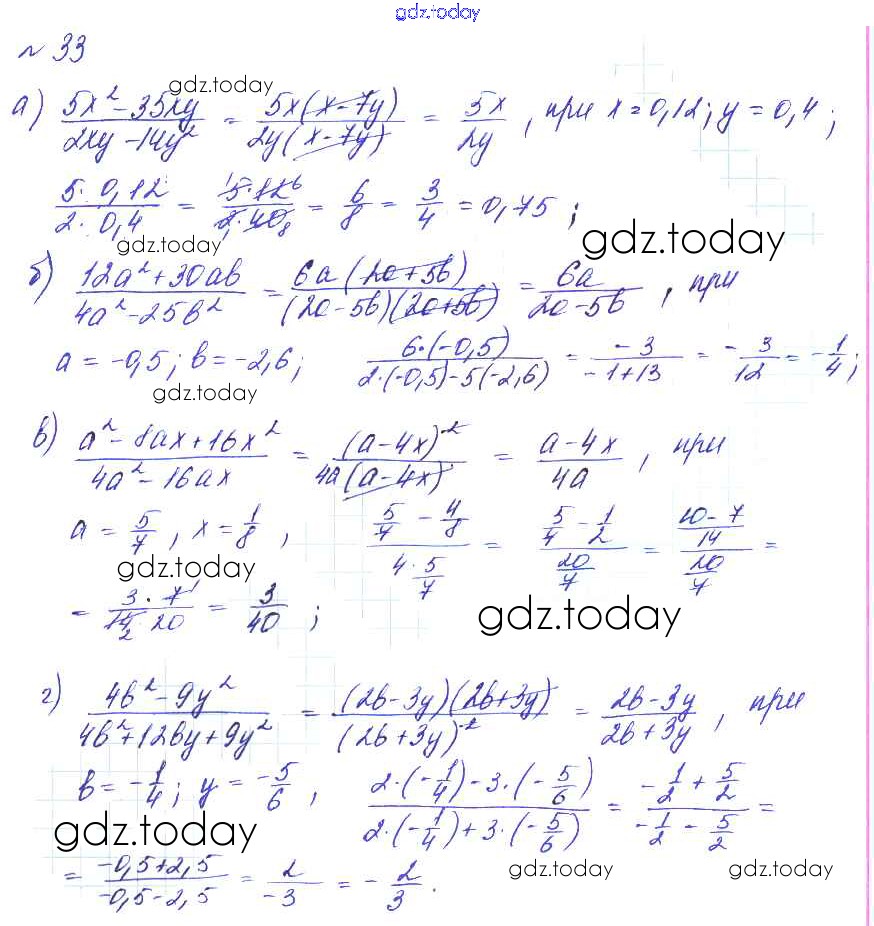 gdz.today
№ 33
gdz.today
а) (5x² - 35xy)/(2xy - 14y²) = (5x(x - 7y))/(2y(x - 7y)) = 5x/2y , при x = 0,12; y = 0,4 ;
(5 · 0,12)/(2 · 0,4) = (5 · 12)/(2 · 40) = 6/8 = 3/4 = 0,75 ;
gdz.today
gdz.today
б) (12a² + 30ab)/(4a² - 25b²) = (6a(2a + 5b))/((2a - 5b)(2a + 5b)) = 6a/(2a - 5b) , при
a = -0,5 ; b = -2,6 ; (6·(-0,5))/(2·(-0,5) - 5(-2,6)) = (-3)/(-1+13) = -3/12 = -1/4 ;
gdz.today
в) (a² - 8ax + 16x²)/(4a² - 16ax) = (a - 4x)²/(4a(a - 4x)) = (a - 4x)/4a , при
a = 5/7 , x = 1/8 , (5/7 - 4/8)/(4 · 5/7) = (5/4 - 1/2)/(20/7) = ((10 - 7)/14)/(20/7) =
gdz.today
= (3 · 7)/(14 · 20) = 3/40 ;
gdz.today
г) (4b² - 9y²)/(4b² + 12by + 9y²) = ((2b - 3y)(2b + 3y))/(2b + 3y)² = (2b - 3y)/(2b + 3y) , при
b = -1/4 ; y = -5/6 , (2·(-1/4) - 3·(-5/6))/(2·(-1/4) + 3·(-5/6)) = (-1/2 + 5/2)/(-1/2 - 5/2) =
gdz.today
= (-0,5 + 2,5)/(-0,5 - 2,5) = 2/-3 = -2/3 .
gdz.today
gdz.today